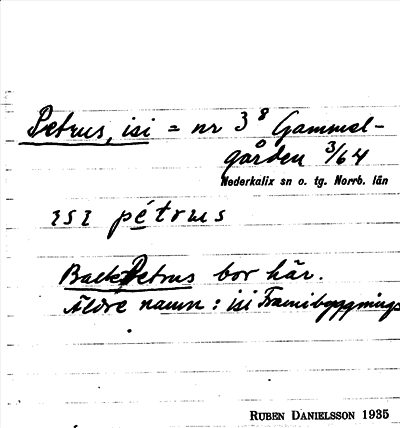 Petrus, isi = nr 3⁸ Gammel-
gården 3/64
Nederkalix sn o. tg. Norrb. län
ısı pétrus
Back Petrus bor här.
Äldre namn: isi Framibyggnings
RUBEN DANIELSSON 1935